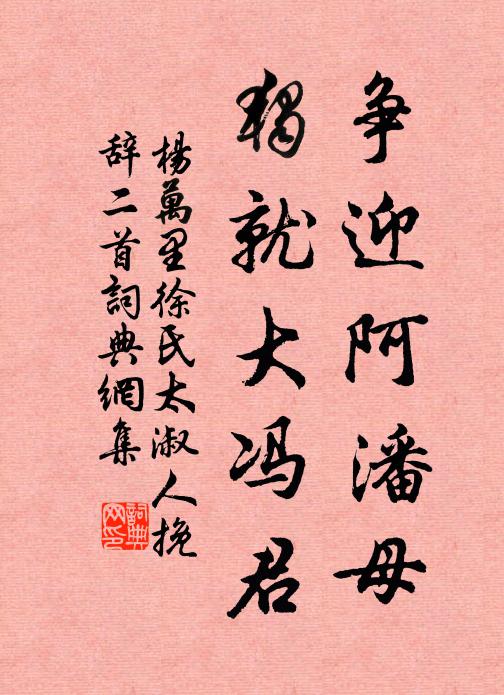 争迎阿潘母
独就大冯君
楊萬里徐氏太淑人挽
辞二首詞典網集
詞典网印